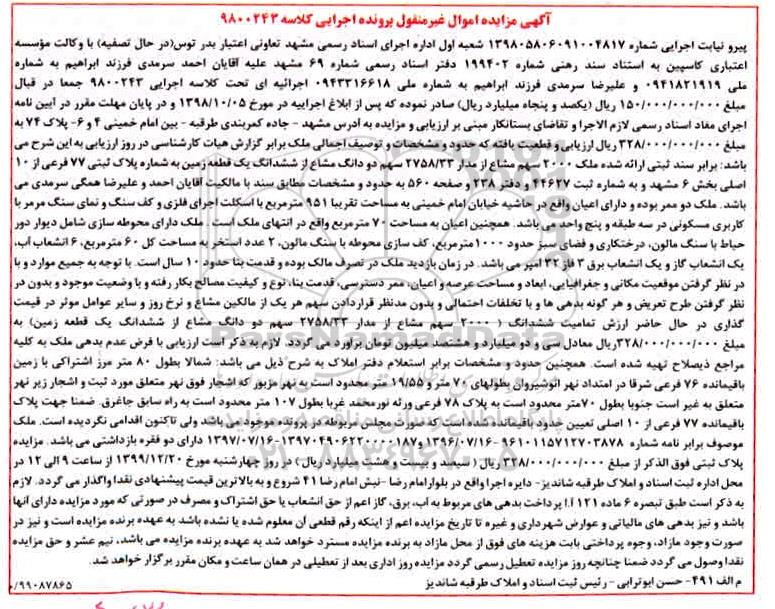 آگهی مزایده اموال غیرمنقول پرونده اجرایی کلاسه ۹۸۰۰۲۴۳
پیرو نیابت اجرایی شماره ۱۳۹۸۰۵۸۰۶۰۹۱۰۰۴۸۱۷ شعبه اول اداره اجرای اسناد رسمی مشهد تعاونی اعتبار بدر توس(در حال تصفیه) با وکالت مؤسسه
اعتباری کاسپین به استناد سند رهنی شماره ۱۹۹۴۰۲ دفتر اسناد رسمی شماره ۶۹ مشهد علیه آقایان احمد سرمدی فرزند ابراهیم به شماره
ملی ۰۹۴۱۸۲۱۹۱۹ و علیرضا سرمدی فرزند ابراهیم به شماره ملی ۰۹۴۳۳۱۶۶۱۸ اجرائیه ای تحت کلاسه اجرایی ۹۸۰۰۲۴۳ جمعا در قبال
مبلغ ۱۵۰/۰۰۰/۰۰۰/۰۰۰ ریال (یکصد و پنجاه میلیارد ریال) صادر نموده که پس از ابلاغ اجراییه در مورخ ۱۳۹۸/۱۰/۰۵ و در پایان مهلت مقرر در آیین نامه
اجرای مفاد اسناد رسمی لازم الاجرا و تقاضای بستانکار مبنی بر ارزیابی و مزایده به ادرس مشهد - جاده کمربندی طرقبه - بین امام خمینی ۴ و ۶- پلاک ۷۴ به
مبلغ ۳۲۸/۰۰۰/۰۰۰/۰۰۰ ریال ارزیابی و قطعیت یافته که حدود و مشخصات و توصیف اجمالی ملک برابر گزارش هیات کارشناسی در روز ارزیابی به این شرح می
باشد: برابر سند ثبتی ارائه شده ملک ۲۰۰۰ سهم مشاع از مدار ۲۷۵۸/۳۳ سهم دو دانگ مشاع از ششدانگ یک قطعه زمین به شماره پلاک ثبتی ۷۷ فرعی از ۱۰
اصلی بخش ۶ مشهد و به شماره ثبت ۴۴۶۲۷ و دفتر ۲۳۸ و صفحه ۵۶۰ به حدود و مشخصات مطابق سند با مالکیت آقایان احمد و علیرضا همگی سرمدی می
باشد. ملک دو ممر بوده و دارای اعیان واقع در حاشیه خیابان امام خمینی به مساحت تقریبا ۹۵۱ مترمربع با اسکلت اجرای فلزی و کف سنگ و نمای سنگ مرمر با
کاربری مسکونی در سه طبقه و پنج واحد می باشد. همچنین اعیان به مساحت ۷۰ مترمربع واقع در انتهای ملک است. ملک دارای محوطه سازی شامل دیوار دور
حیاط با سنگ مالون، درختکاری و فضای سبز حدود ۱۰۰۰مترمربع، کف سازی محوطه با سنگ مالون، ۲ عدد استخر به مساحت کل ۶۰ مترمربع، ۶ انشعاب آب،
یک انشعاب گاز و یک انشعاب برق ۳ فاز ۳۲ آمپر می باشد. در زمان بازدید ملک در تصرف مالک بوده و قدمت بنا حدود ۱۰ سال است. با توجه به جمیع موارد و با
در نظر گرفتن موقعیت مکانی و جغرافیایی، ابعاد و مساحت عرصه و اعیان، ممر دسترسی، قدمت بنا، نوع و کیفیت مصالح بکار رفته و با وضعیت موجود و بدون در
نظر گرفتن طرح تعریض و هر گونه بدهی ها و با تخلفات احتمالی و بدون مدنظر قراردادن سهم هر یک از مالکین مشاع و نرخ روز و سایر عوامل موثر در قیمت
گذاری در حال حاضر ارزش تمامیت ششدانگ ( ۲۰۰۰ سهم مشاع از مدار ۲۷۵۸/۳۳ سهم دو دانگ مشاع از ششدانگ یک قطعه زمین) به
مبلغ ۳۲۸/۰۰۰/۰۰۰/۰۰۰ریال معادل سی و دو میلیارد و هشتصد میلیون تومان برآورد می گردد. لازم به ذکر است ارزیابی با فرض عدم بدهی ملک به کلیه
مراجع ذیصلاح تهیه شده است. همچنین حدود و مشخصات برابر استعلام دفتر املاک به شرح ذیل می باشد: شمالا بطول ۸۰ متر مرز اشتراکی با زمین
باقیمانده ۷۶ فرعی شرقا در امتداد نهر انوشیروان بطولهای ۷۰ متر و ۱۹/۵۵ متر محدود است به نهر مزبور که اشجار فوق نهر متعلق مورد ثبت و اشجار زیر نهر
متعلق به غیر است جنوبا بطول ۷۰متر محدود است به پلاک ۷۸ فرعی ورثه نورمحمد غربا بطول ۱۰۷ متر محدود است به راه سابق جاغرق. ضمنا جهت پلاک
باقیمانده ۷۷ فرعی از ۱۰ اصلی تعیین حدود باقیمانده شده است که صورت مجلس مربوطه در پرونده موجود می باشد ولی تاکنون اقدامی نگردیده است. ملک
موصوف برابر نامه شماره ۹۶۱۰۱۱۵۷۱۲۷۰۳۸۷۸-۱۳۹۶/۰۷/۱۶ و ۱۳۹۷۰۴۹۰۶۲۲۰۰۰۰۱۸۷-۱۳۹۷/۰۷/۱۶ دارای دو فقره بازداشتی می باشد. مزایده
پلاک ثبتی فوق الذکر از مبلغ ۳۲۸/۰۰۰/۰۰۰/۰۰۰ ریال ( سیصد و بیست و هشت میلیارد ریال ) در روز چهارشنبه مورخ ۱۳۹۹/۱۲/۲۰ از ساعت ۹ الی ۱۲ در
محل اداره ثبت اسناد و املاک طرقبه شاندیز- دایره اجرا واقع در بلوار امام رضا -نبش امام رضا ۴۱ شروع و به بالاترین قیمت پیشنهادی نقدا واگذار می گردد. لازم
به ذکر است طبق تبصره ۶ ماده ۱۲۱ آ.ا پرداخت بدهی های مربوط به آب، برق، گاز اعم از حق انشعاب یا حق اشتراک و مصرف در صورتی که مورد مزایده دارای آنها
باشد و نیز بدهی های مالیاتی و عوارض شهرداری و غیره تا تاریخ مزایده اعم از اینکه رقم قطعی آن معلوم شده یا نشده باشد به عهده برنده مزایده است و نیز در
صورت وجود مازاد، وجوه پرداختی بابت هزینه های فوق از محل مازاد به برنده مزایده مسترد خواهد شد به عهده برنده مزایده می باشد، نیم عشر و حق مزایده
نقدا وصول می گردد ضمنا چنانچه روز مزایده تعطیل رسمی گردد مزایده روز اداری بعد از تعطیلی در همان ساعت و مکان مقرر برگزار خواهد شد.
م الف ۴۹۱- حسن ابوترابی - رئیس ثبت اسناد و املاک طرقبه شاندیز
۹۹۰۸۷۸۶۵/
ParsNamadData
۰۲۱-۸۸۳۴۹۶۷۰-۵